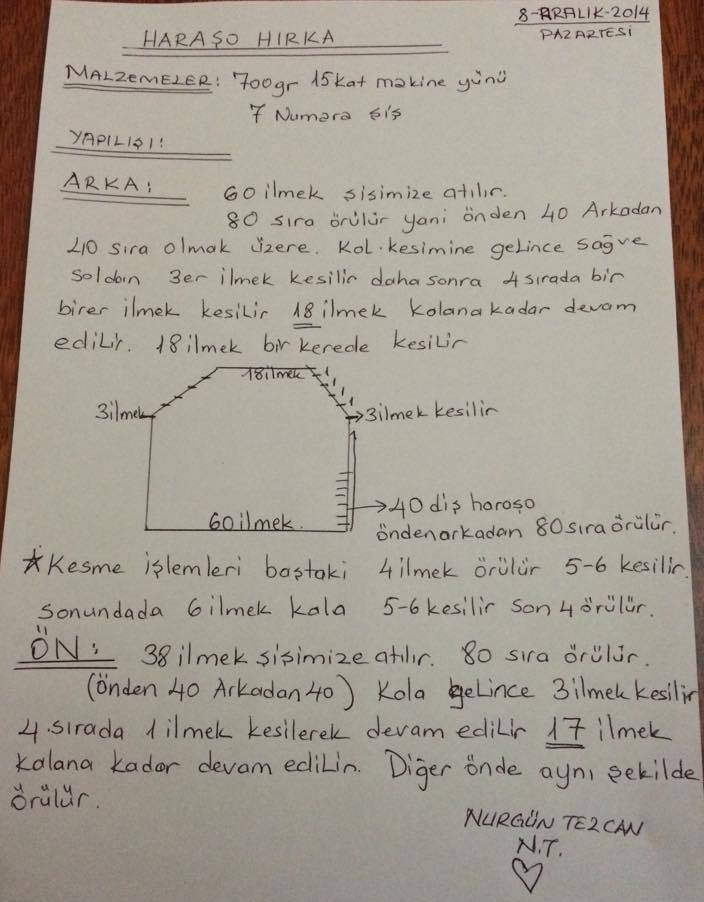 8-ARALIK-2014
PAZARTESİ
HARAŞO HIRKA
MALZEMELER: 700gr 15kat makine yünü
7 Numara şiş
YAPILIŞI:
ARKA: 60 ilmek şişimize atılır.
80 sıra örülür yani önden 40 Arkadan
40 sıra olmak üzere. Kol kesimine gelince sağve
soldan 3er ilmek kesilir daha sonra 4 sırada bir
birer ilmek kesilir 18 ilmek kalana kadar devam
edilir. 18 ilmek bir kerede kesilir
18ilmek
3ilmek
3ilmek kesilir
40 diş haroşo
60ilmek
öndenarkadan 80sıra örülür.
★Kesme işlemleri baştaki 4ilmek örülür 5-6 kesilir.
Sonundada 6ilmek kala 5-6 kesilir son 4 örülür.
ÖN: 38 ilmek şişimize atılır. 80 sıra örülür.
(önden 40 Arkadan 40) Kola gelince 3ilmek kesilir
4.sırada 1 ilmek kesilerek devam edilir 17 ilmek
kalana kadar devam edilir. Diğer önde aynı şekilde
örülür.
NURGÜN TEZCAN
N.T.